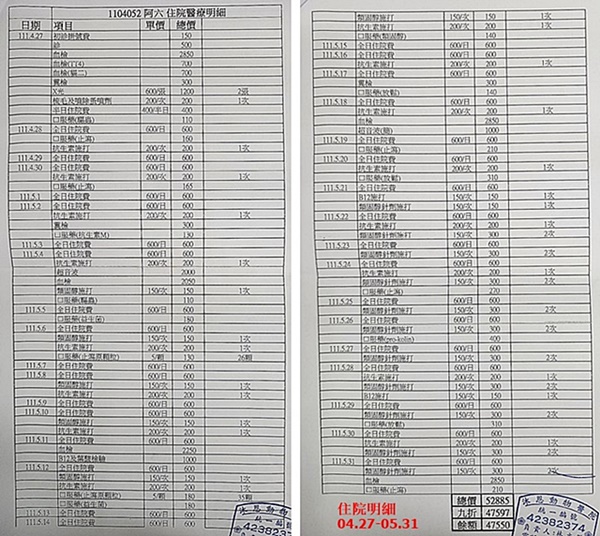 1104052 阿六 住院醫療明細
日期 項目 單價 總價
111.4.27 初診掛號費 150
診 500
血檢 2850
血檢(TT4) 700
血檢(貓二) 700
糞檢 300
X光 600/張 1200 2張
梳毛及噴除蚤噴劑 200/次 200 1次
半日住院費 400/半日 400
口服藥(驅蟲) 110
111.4.28 全日住院費 600/日 600
口服藥(止瀉) 160
抗生素施打 200/次 200 1次
111.4.29 全日住院費 600/日 600
111.4.30 全日住院費 600/日 600
抗生素施打 200/次 200 1次
口服藥(止瀉) 165
111.5.1 全日住院費 600/日 600
111.5.2 全日住院費 600/日 600
抗生素施打 200/次 200 1次
糞檢 300
口服藥(抗生素M) 130
111.5.3 全日住院費 600/日 600
111.5.4 全日住院費 600/日 600
抗生素施打 200/次 200 1次
超音波 2000
血檢 2050
類固醇施打 150/次 150 1次
口服藥(驅蟲) 110
111.5.5 全日住院費 600/日 600
口服藥(益生菌) 180
111.5.6 全日住院費 600/日 600
類固醇施打 150/次 150 1次
抗生素施打 200/次 200 1次
口服藥(止瀉原顆粒) 5/顆 130 26顆
111.5.7 全日住院費 600/日 600
111.5.8 全日住院費 600/日 600
類固醇施打 150/次 150 1次
抗生素施打 200/次 200 1次
111.5.9 全日住院費 600/日 600
111.5.10 全日住院費 600/日 600
類固醇施打 150/次 150 1次
抗生素施打 200/次 200 1次
111.5.11 全日住院費 600/日 600
血檢 2250
B12及葉酸檢驗 1000
111.5.12 全日住院費 600/日 600
類固醇施打 150/次 150 1次
抗生素施打 200/次 200 1次
口服藥(止瀉原顆粒) 5/顆 180 35顆
口服藥(益生菌) 180
111.5.13 全日住院費 600/日 600
111.5.14 全日住院費 600/日 600
類固醇施打 150/次 150 1次
抗生素施打 200/次 200 1次
口服藥(類固醇) 140
111.5.15 全日住院費 600/日 600
111.5.16 全日住院費 600/日 600
抗生素施打 200/次 200 1次
111.5.17 全日住院費 600/日 600
糞檢 300
口服藥(放鬆) 140
111.5.18 全日住院費 600/日 600
抗生素施打 200/次 200 1次
血檢 2850
超音波(簡) 1000
111.5.19 全日住院費 600/日 600
口服藥(止瀉) 210
111.5.20 全日住院費 600/日 600
抗生素施打 200/次 200 1次
口服藥(放鬆) 310
111.5.21 全日住院費 600/日 600
B12施打 150/次 150 1次
類固醇針劑施打 150/次 150 1次
111.5.22 全日住院費 600/日 600
抗生素施打 200/次 200 1次
類固醇針劑施打 150/次 300 2次
111.5.23 全日住院費 600/日 600
類固醇針劑施打 150/次 300 2次
111.5.24 全日住院費 600/日 600
抗生素施打 200/次 200 1次
類固醇針劑施打 150/次 300 2次
口服藥(止瀉) 220
111.5.25 全日住院費 600/日 600
類固醇針劑施打 150/次 300 2次
111.5.26 全日住院費 600/日 600
類固醇針劑施打 150/次 300 2次
口服藥(pro-kolin) 400
111.5.27 全日住院費 600/日 600
類固醇針劑施打 150/次 300 2次
111.5.28 全日住院費 600/日 600
抗生素施打 200/次 200 1次
類固醇針劑施打 150/次 300 2次
B12施打 150/次 150 1次
111.5.29 全日住院費 600/日 600
類固醇針劑施打 150/次 300 2次
口服藥(放鬆) 310
111.5.30 全日住院費 600/日 600
抗生素施打 200/次 200 1次
類固醇針劑施打 150/次 300 2次
111.5.31 全日住院費 600/日 600
類固醇針劑施打 150/次 300 2次
血檢 2850
口服藥(止瀉) 210
總價 52885
九折 47597
餘額 47550
住院明細
04.27-05.31
恩動物醫院
統一編號
42382374